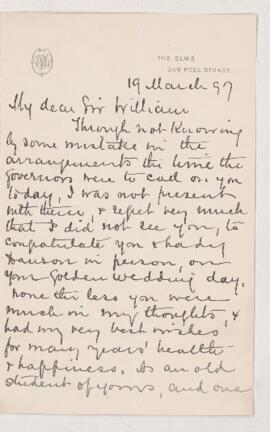 THE ELMS
PEEL STREET.
19 March 97
My dear Sir William
Through not knowing
by some mistake in the
arrangements the time the
Governors were to call on you
today, I was not present
with them, & regret very much
that I did not see you, to
congratulate you & Lady
Dawson in person, on
your Golden wedding day,
none the less you were
much in my thoughts, &
had my very best wishes
for many years' health
& happiness. As an old
student of yours, and one